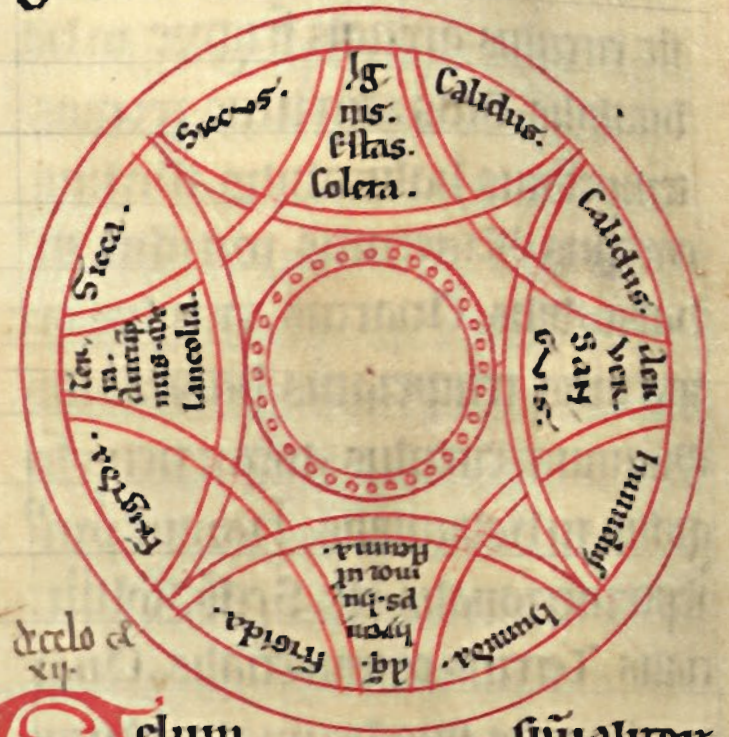 Ig
nis.
Estas.
Colera.
Calidus.
Calidus.
Aer
ver.
San
gvis.
humidus
humida.
Aq̄.
hyem
ps. hu
mor ut
fleuma.
frigida.
frigida.
Ter
ra.
Autūp
nus. me
lancolia.
Sicca.
Siccus.
de celo cł
xij.
elum